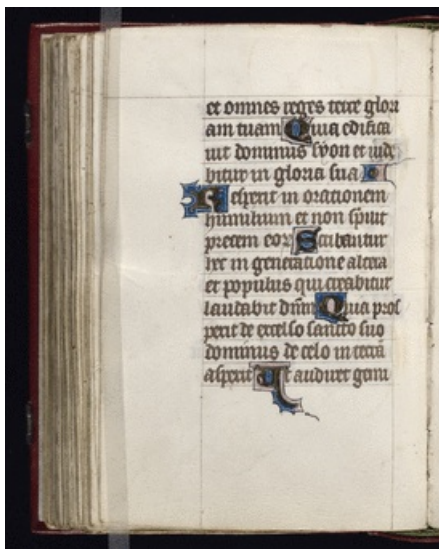 et omnes reges terre glori
am tuam Quia edifica
uit dominus syon et uide
bitur in gloria sua
Respexit in orationem
humilium et non spreuit
precem eorum Scribantur
hec in generatione altera
et populus qui creabitur
laudabit dnm Quia pros
pexit de excelso sancto suo
dominus de celo in terra
aspexit Ut audiret gemi